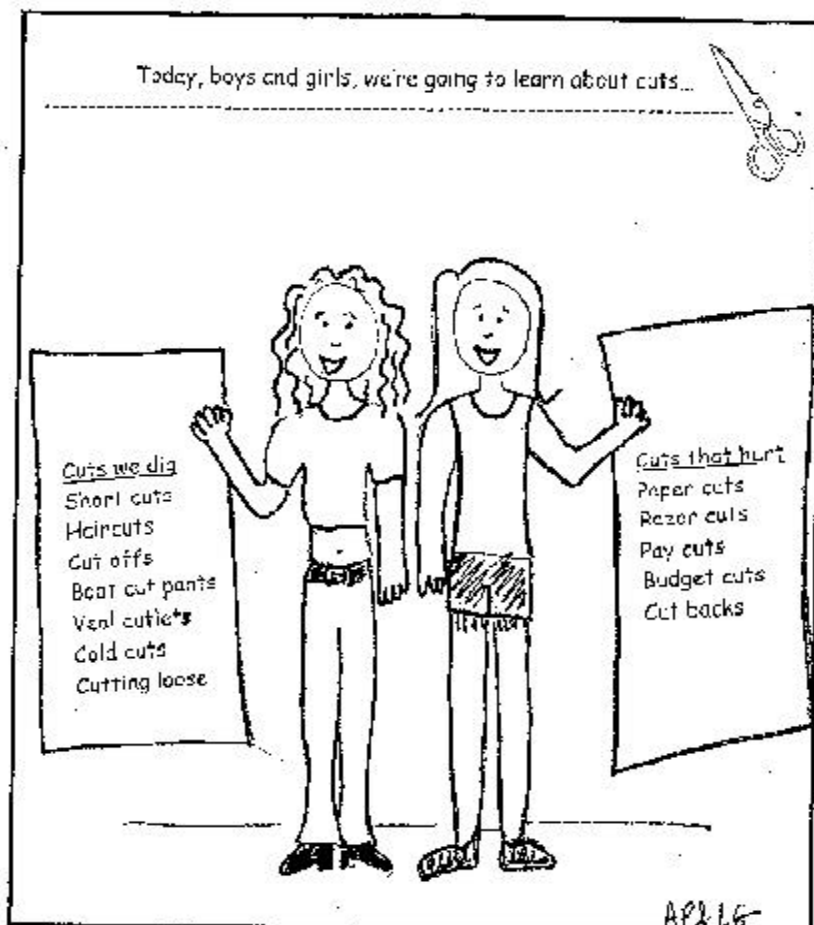 Today, boys and girls, we're going to learn about cuts...
Cuts we dig
Short cuts
Haircuts
Cut offs
Boot cut pants
Veal cutlets
Cold cuts
Cutting loose
Cuts that hurt
Paper cuts
Razor cuts
Pay cuts
Budget cuts
Cut backs